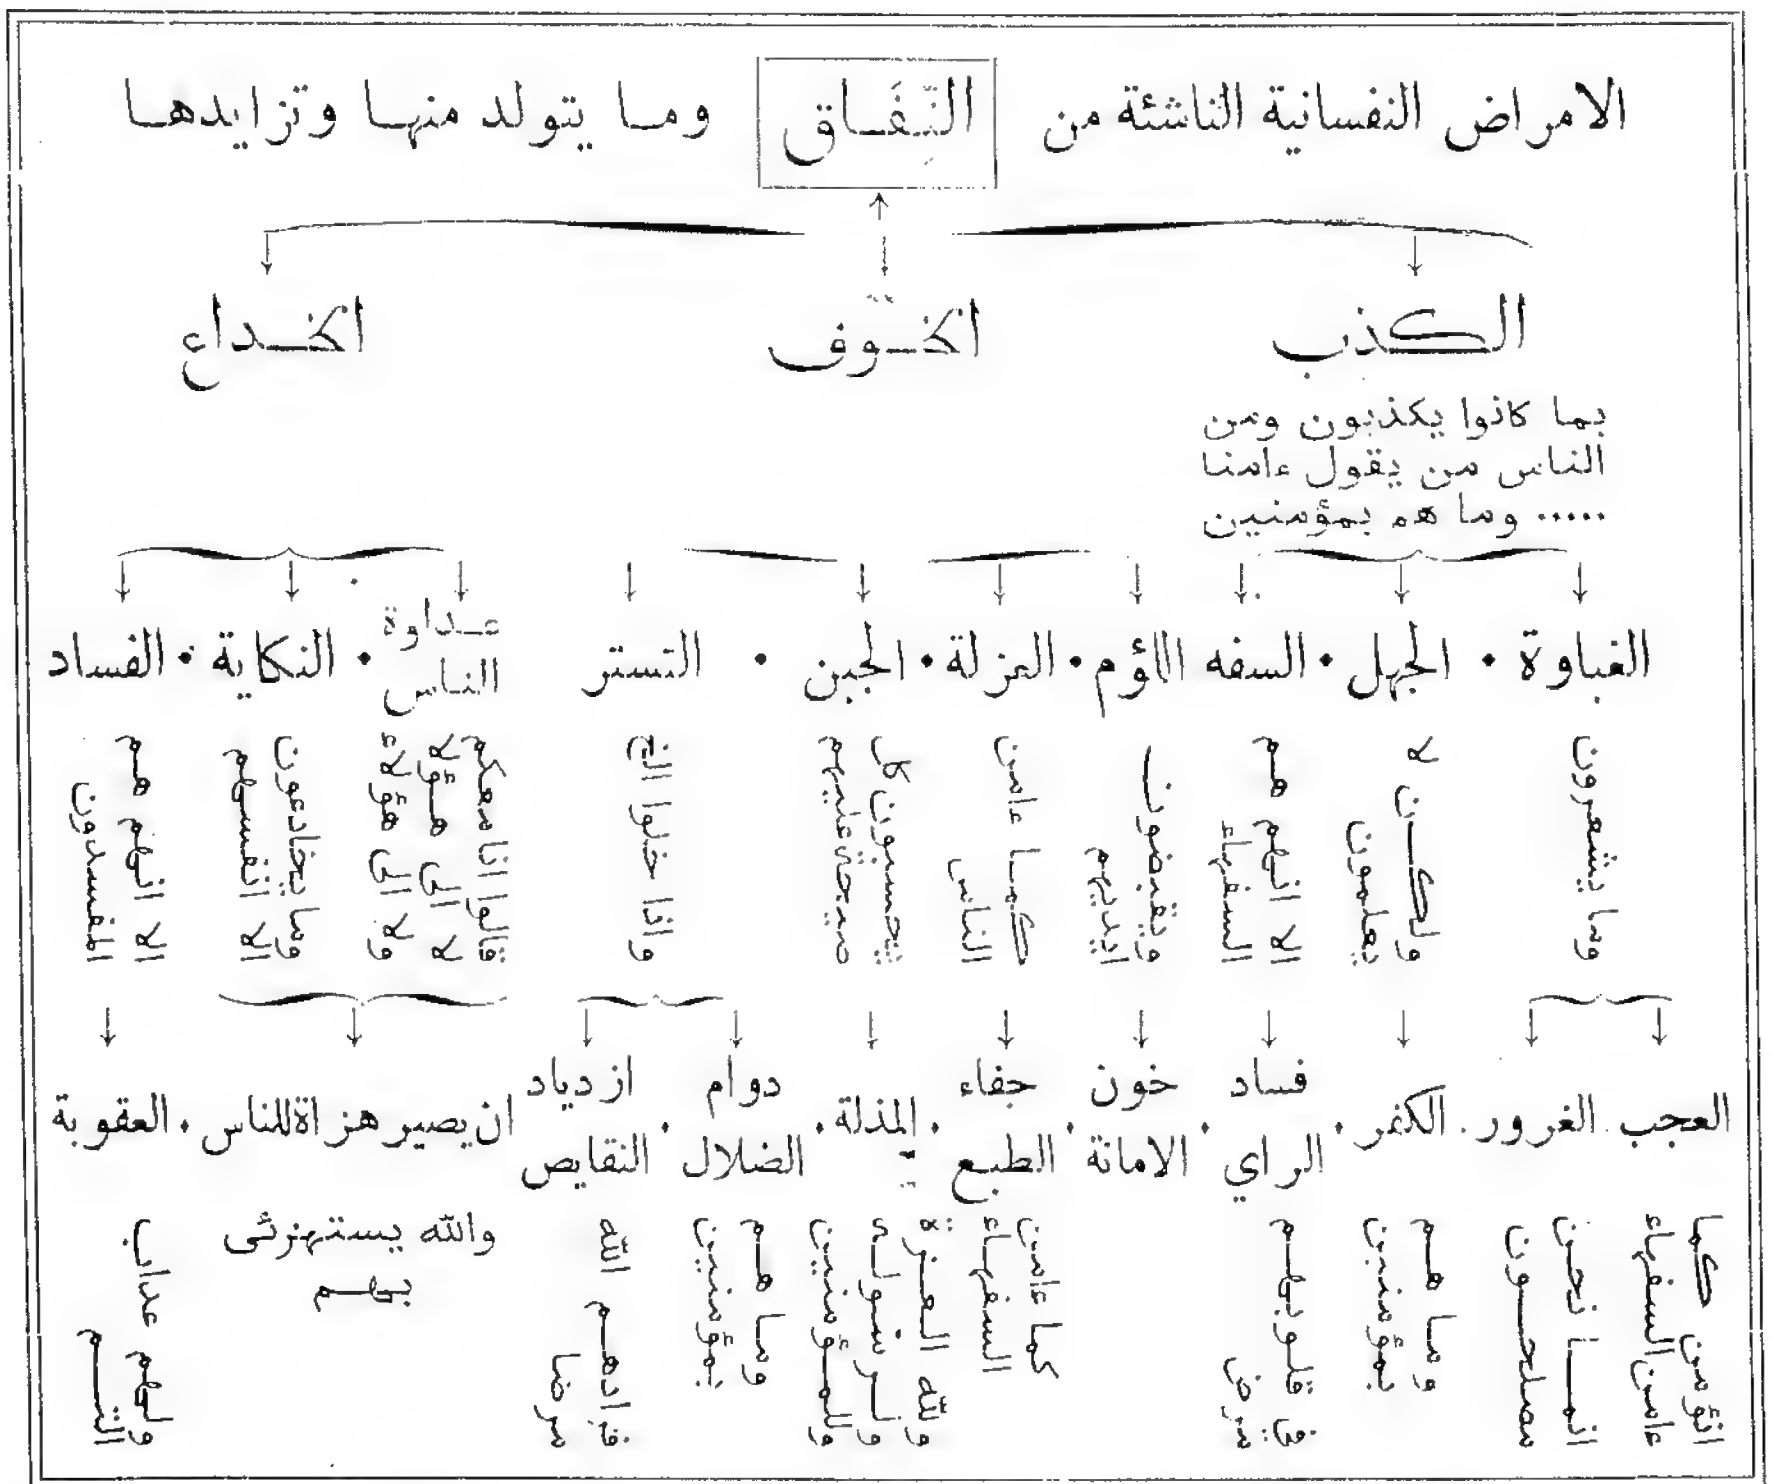 الامراض النفسانية الناشئة من النِّفَاق وما يتولد منها وتزايدها
الكذب
الخوف
الخداع
بما كانوا يكذبون ومن
الناس من يقول ءامنا
..... وما هم بمؤمنين
الغباوة • الجهل • السفه اللؤم • العزلة • الجبن • التستر
عداوة
الناس
• النكاية • الفساد
وما يشعرون
ولكن لا
يعلمون
الا انهم هم
السفهاء
ويقبضون
ايديهم
كما ءامن
الناس
يحسبون كل
صيحة عليهم
واذا خلوا الخ
قالوا انا معكم
لا الى هؤلا
ولا الى هؤلاء
وما يخادعون
الا انفسهم
الا انهم هم
المفسدون
العجب . الغرور . الكفر .
فساد
الراي
خون
الامانة
جفاء
الطبع
المذلة
دوام
الضلال
ازدياد
النقايص
ان يصير هزاة للناس . العقوبة
انؤمن كما
ءامن السفهاء
انما نحن
مصلحون
وما هم
بمؤمنين
في قلوبهم
مرض
كما ءامن
السفهاء
ولله العزة
ولرسوله
وللمؤمنين
وما هم
بمؤمنين
فزادهم الله
مرضا
والله يستهزئى
بهم
ولهم عذاب
اليم